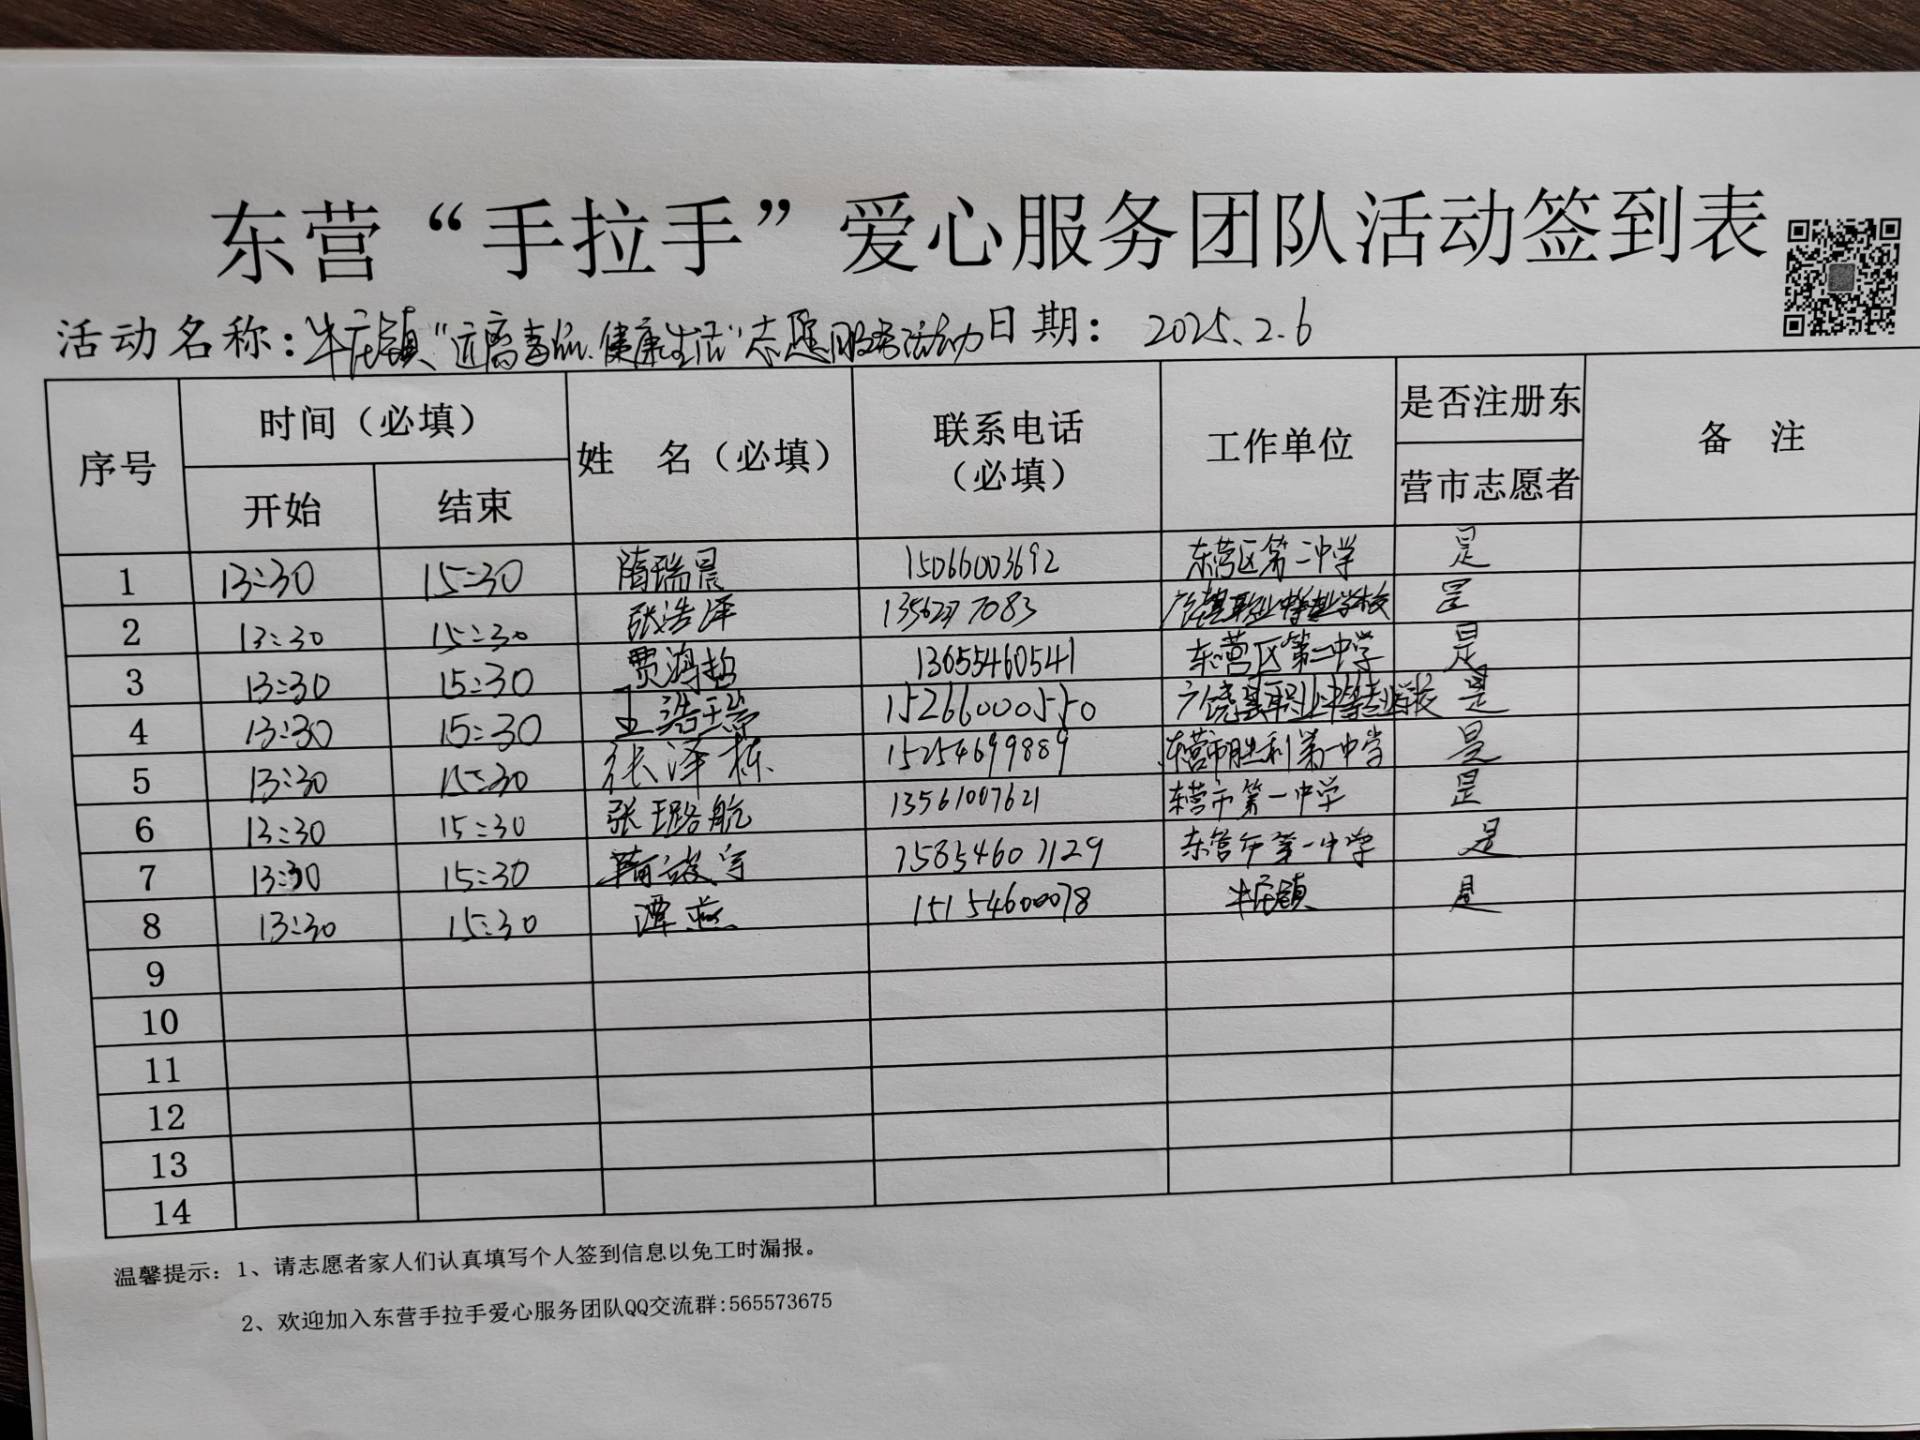 东营“手拉手”爱心服务团队活动签到表
活动名称：牛庄镇“远离毒品、健康生活”志愿服务活动 日期： 2025.2.6
序号 时间（必填） 姓 名（必填） 联系电话（必填） 工作单位 是否注册东营市志愿者 备 注
开始 结束
1 13:30 15:30 隋瑞晨 15066003692 东营区第二中学 是
2 13:30 15:30 张浩泽 7083 广饶县职业中等专业学校 是
3 13:30 15:30 贾鸿哲 13655460541 东营区第二中学 是
4 13:30 15:30 王浩瑞 15266000550 广饶县职业中等专业学校 是
5 13:30 15:30 张泽栋 15254699889 东营市胜利第一中学 是
6 13:30 15:30 张璐航 13561007621 东营市第一中学 是
7 13:30 15:30 东营市第一中学 是
8 13:30 15:30 谭燕 15154600078 牛庄镇 是
9
10
11
12
13
14
温馨提示：1、请志愿者家人们认真填写个人签到信息以免工时漏报。
2、欢迎加入东营手拉手爱心服务团队QQ交流群:565573675